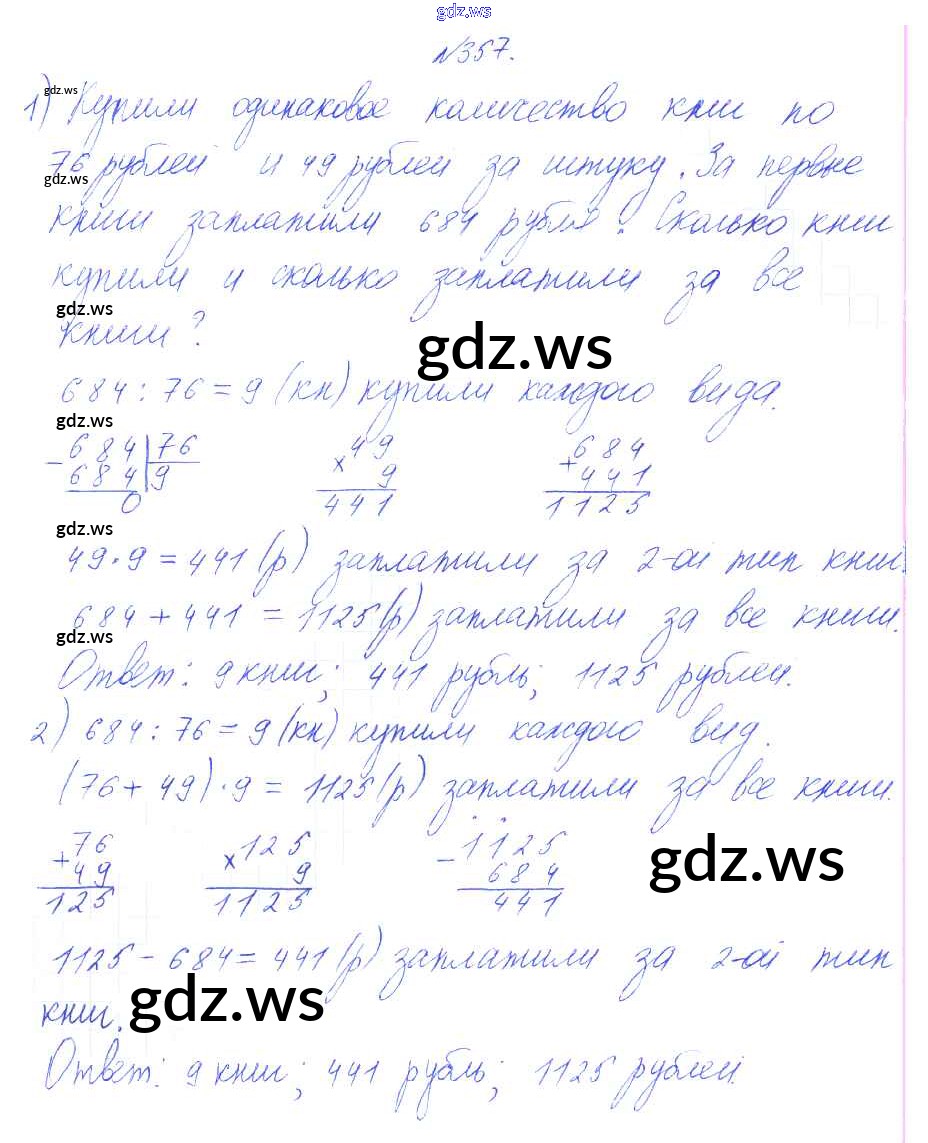 gdz.ws
№357.
gdz.ws
1) Купили одинаковое количество книг по
76 рублей и 49 рублей за штуку. За первые
gdz.ws
книги заплатили 684 рубля? Сколько книг
купили и сколько заплатили за все
gdz.ws
книги?
gdz.ws
684 : 76 = 9 (кн) купили каждого вида.
gdz.ws
- 684 | 76
684 | 9
0
× 49
9
441
+ 684
441
1125
gdz.ws
49 · 9 = 441 (р) заплатили за 2-ой тип книг.
684 + 441 = 1125 (р) заплатили за все книги.
gdz.ws
Ответ: 9 книг; 441 рубль; 1125 рублей.
2) 684 : 76 = 9 (кн) купили каждого вид.
(76 + 49) · 9 = 1125 (р) заплатили за все книги.
+ 76
49
125
× 125
9
1125
- 1125
684
441
gdz.ws
1125 - 684 = 441 (р) заплатили за 2-ой тип
книг.
gdz.ws
Ответ: 9 книг; 441 рубль; 1125 рублей.